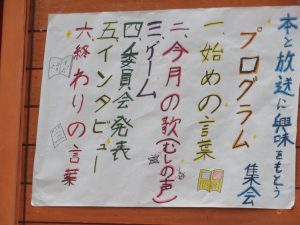 本と放送に興味をもとう
集会
プログラム
一、始めの言葉
二、今月の歌(むしの声)
三、ゲーム
四、委員会発表
五、インタビュー
六、終わりの言葉